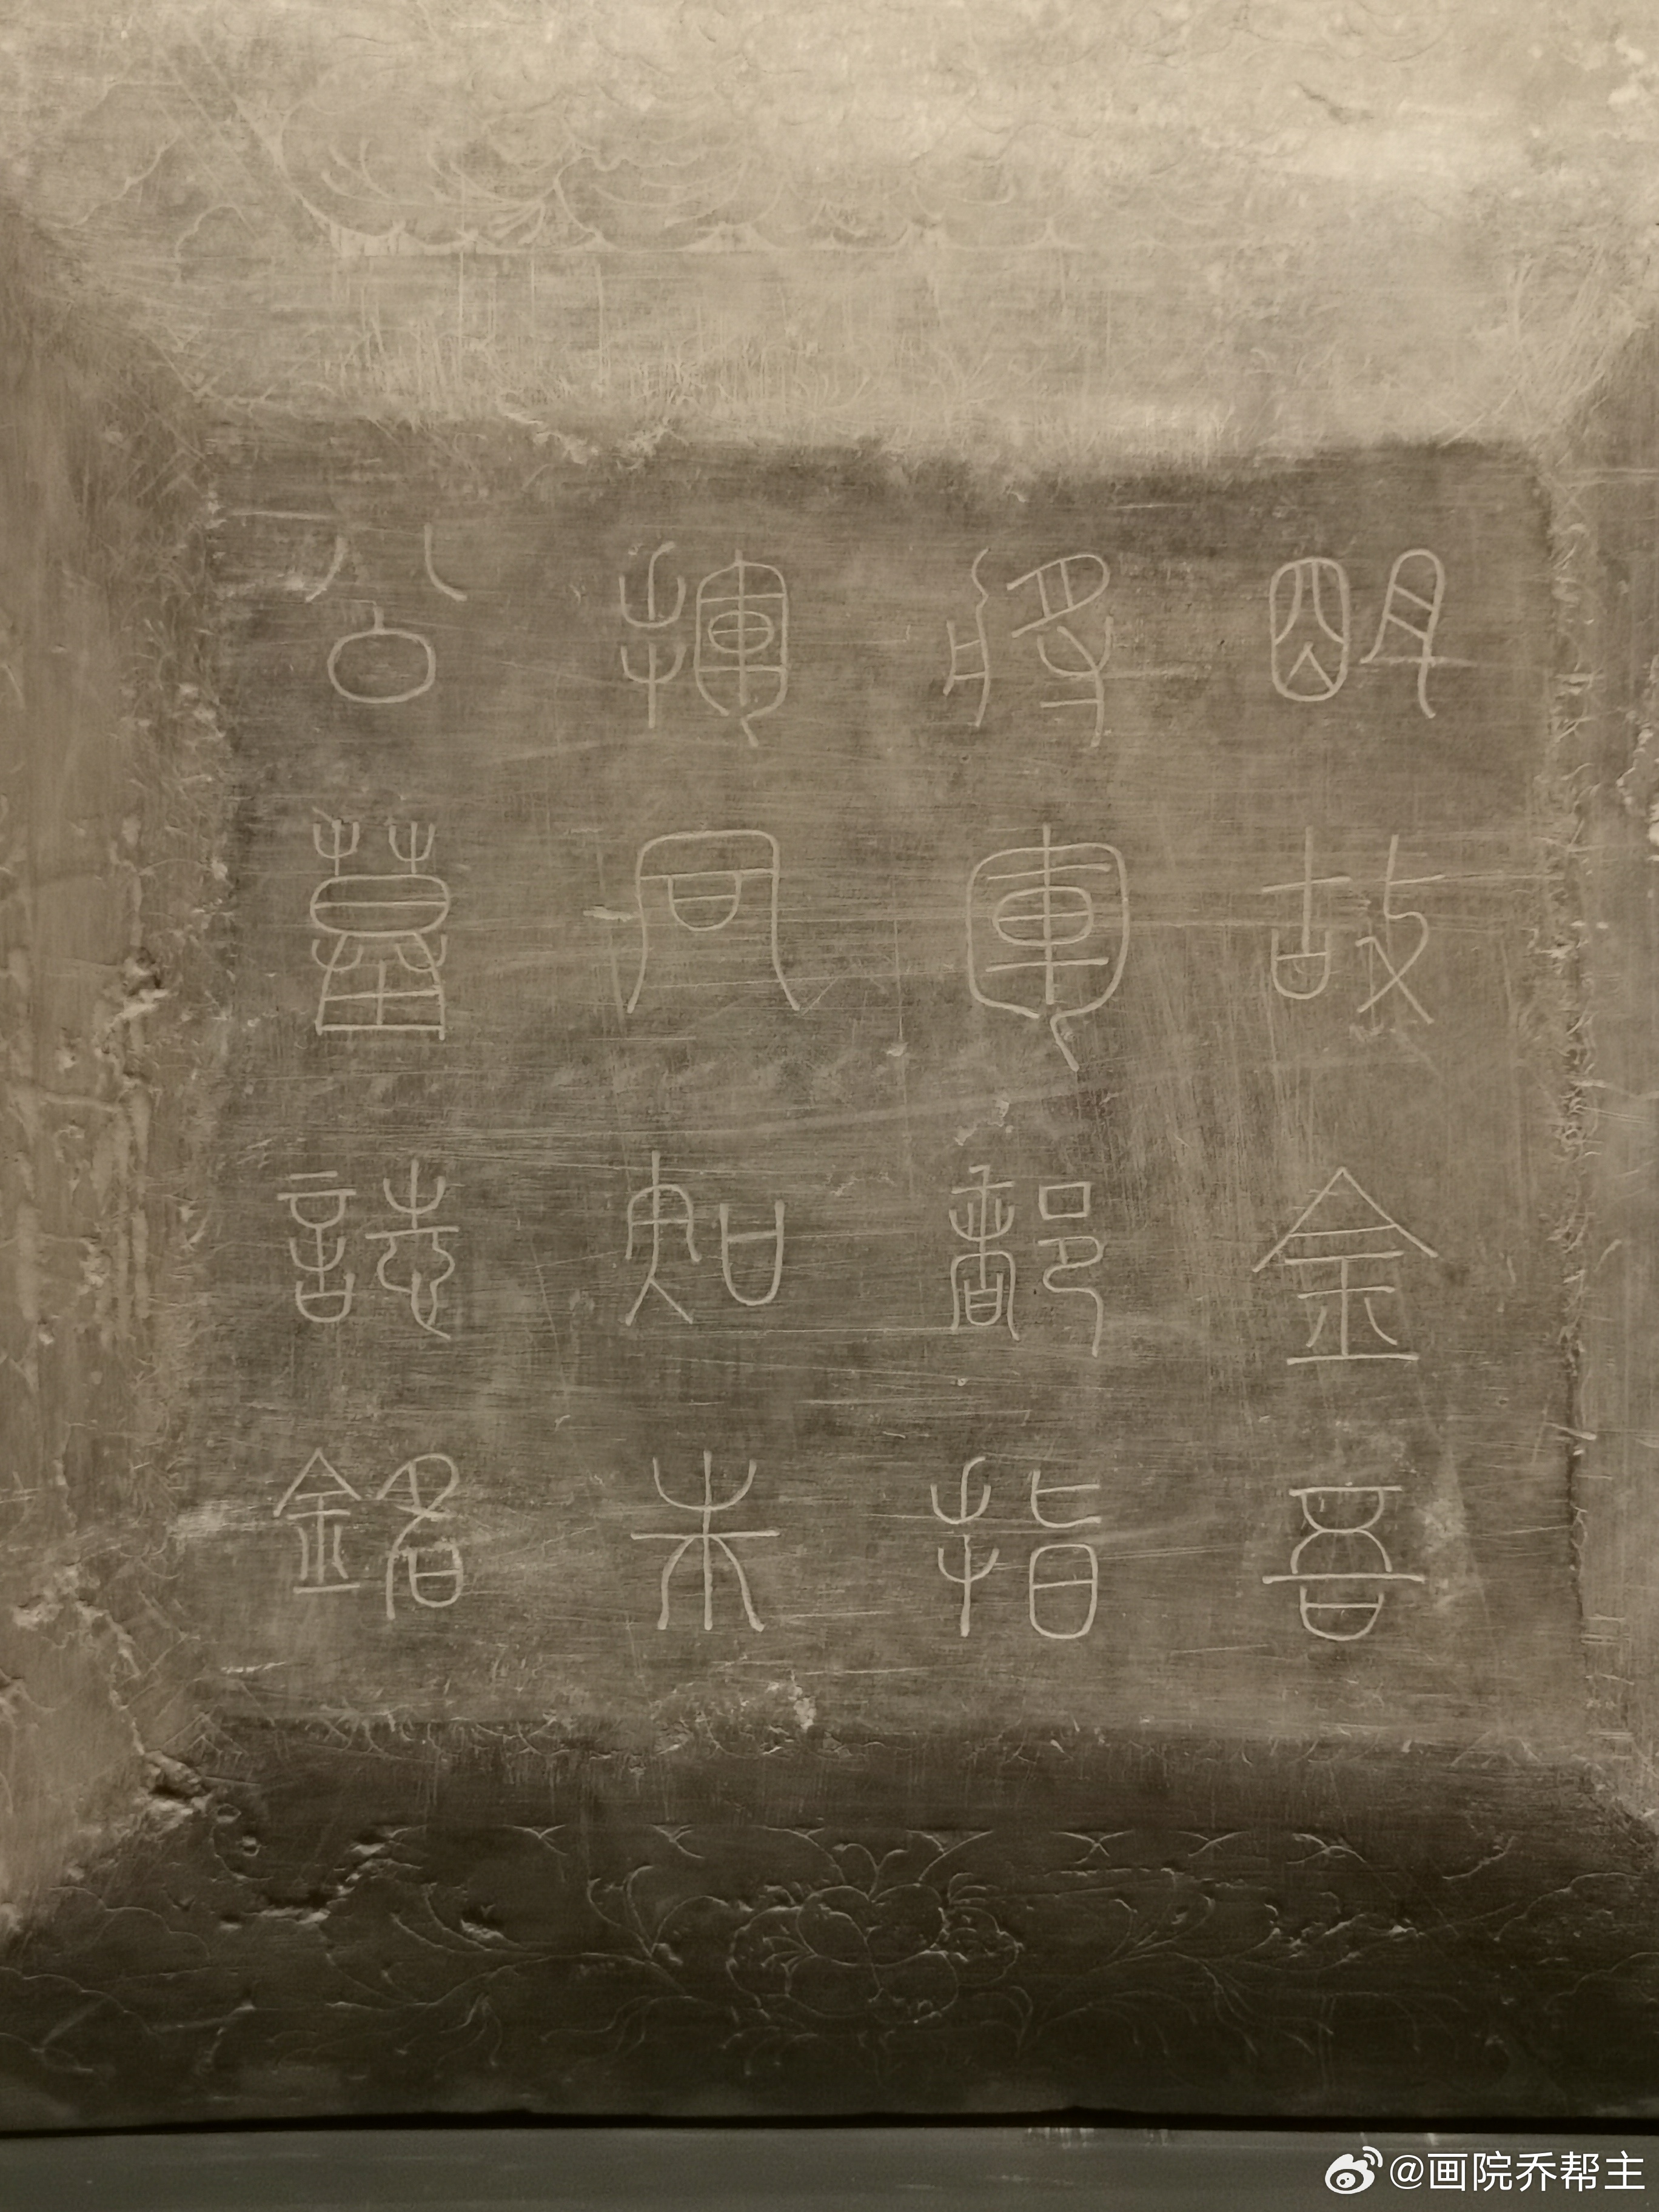 明故金吾
將軍都指
揮同知朱
公墓誌銘
@画院乔帮主